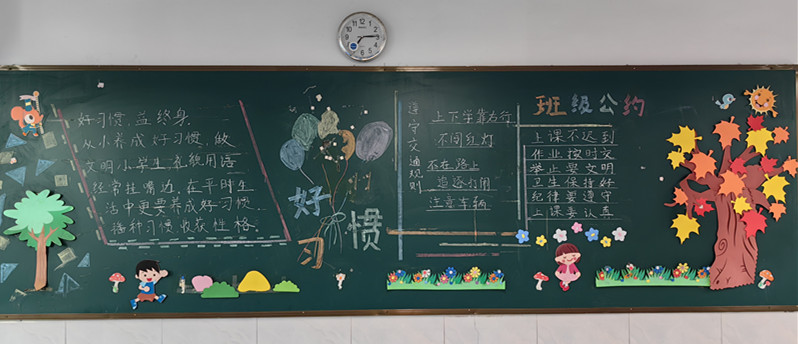 好习惯,益终身.
从小养成好习惯,做
文明小学生,礼貌用语
经常挂嘴边,在平时生
活中更要养成好习惯.
播种习惯收获性格.
好习惯
遵守交通规则
上下学靠右行
不闯红灯
不在路上
追逐打闹
注意车辆
班级公约
上课不迟到
作业按时交
举止要文明
卫生保持好
纪律要遵守
上课要认真